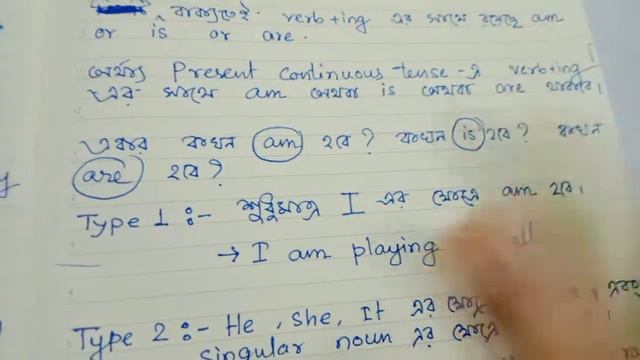 বাক্যতেই verb+ing এর সাথে রয়েছে am
or is or are.
অর্থাৎ Present continuous tense-এ verb+ing
এর সাথে am অথবা is অথবা are থাকবে।
এবার কখন am হবে? কখন is হবে? কখন
are হবে?
Type 1 :- শুধুমাত্র I এর ক্ষেত্রে am হবে।
→ I am playing
Type 2 :- He, She, It এর
singular noun এর ক্ষেত্রে